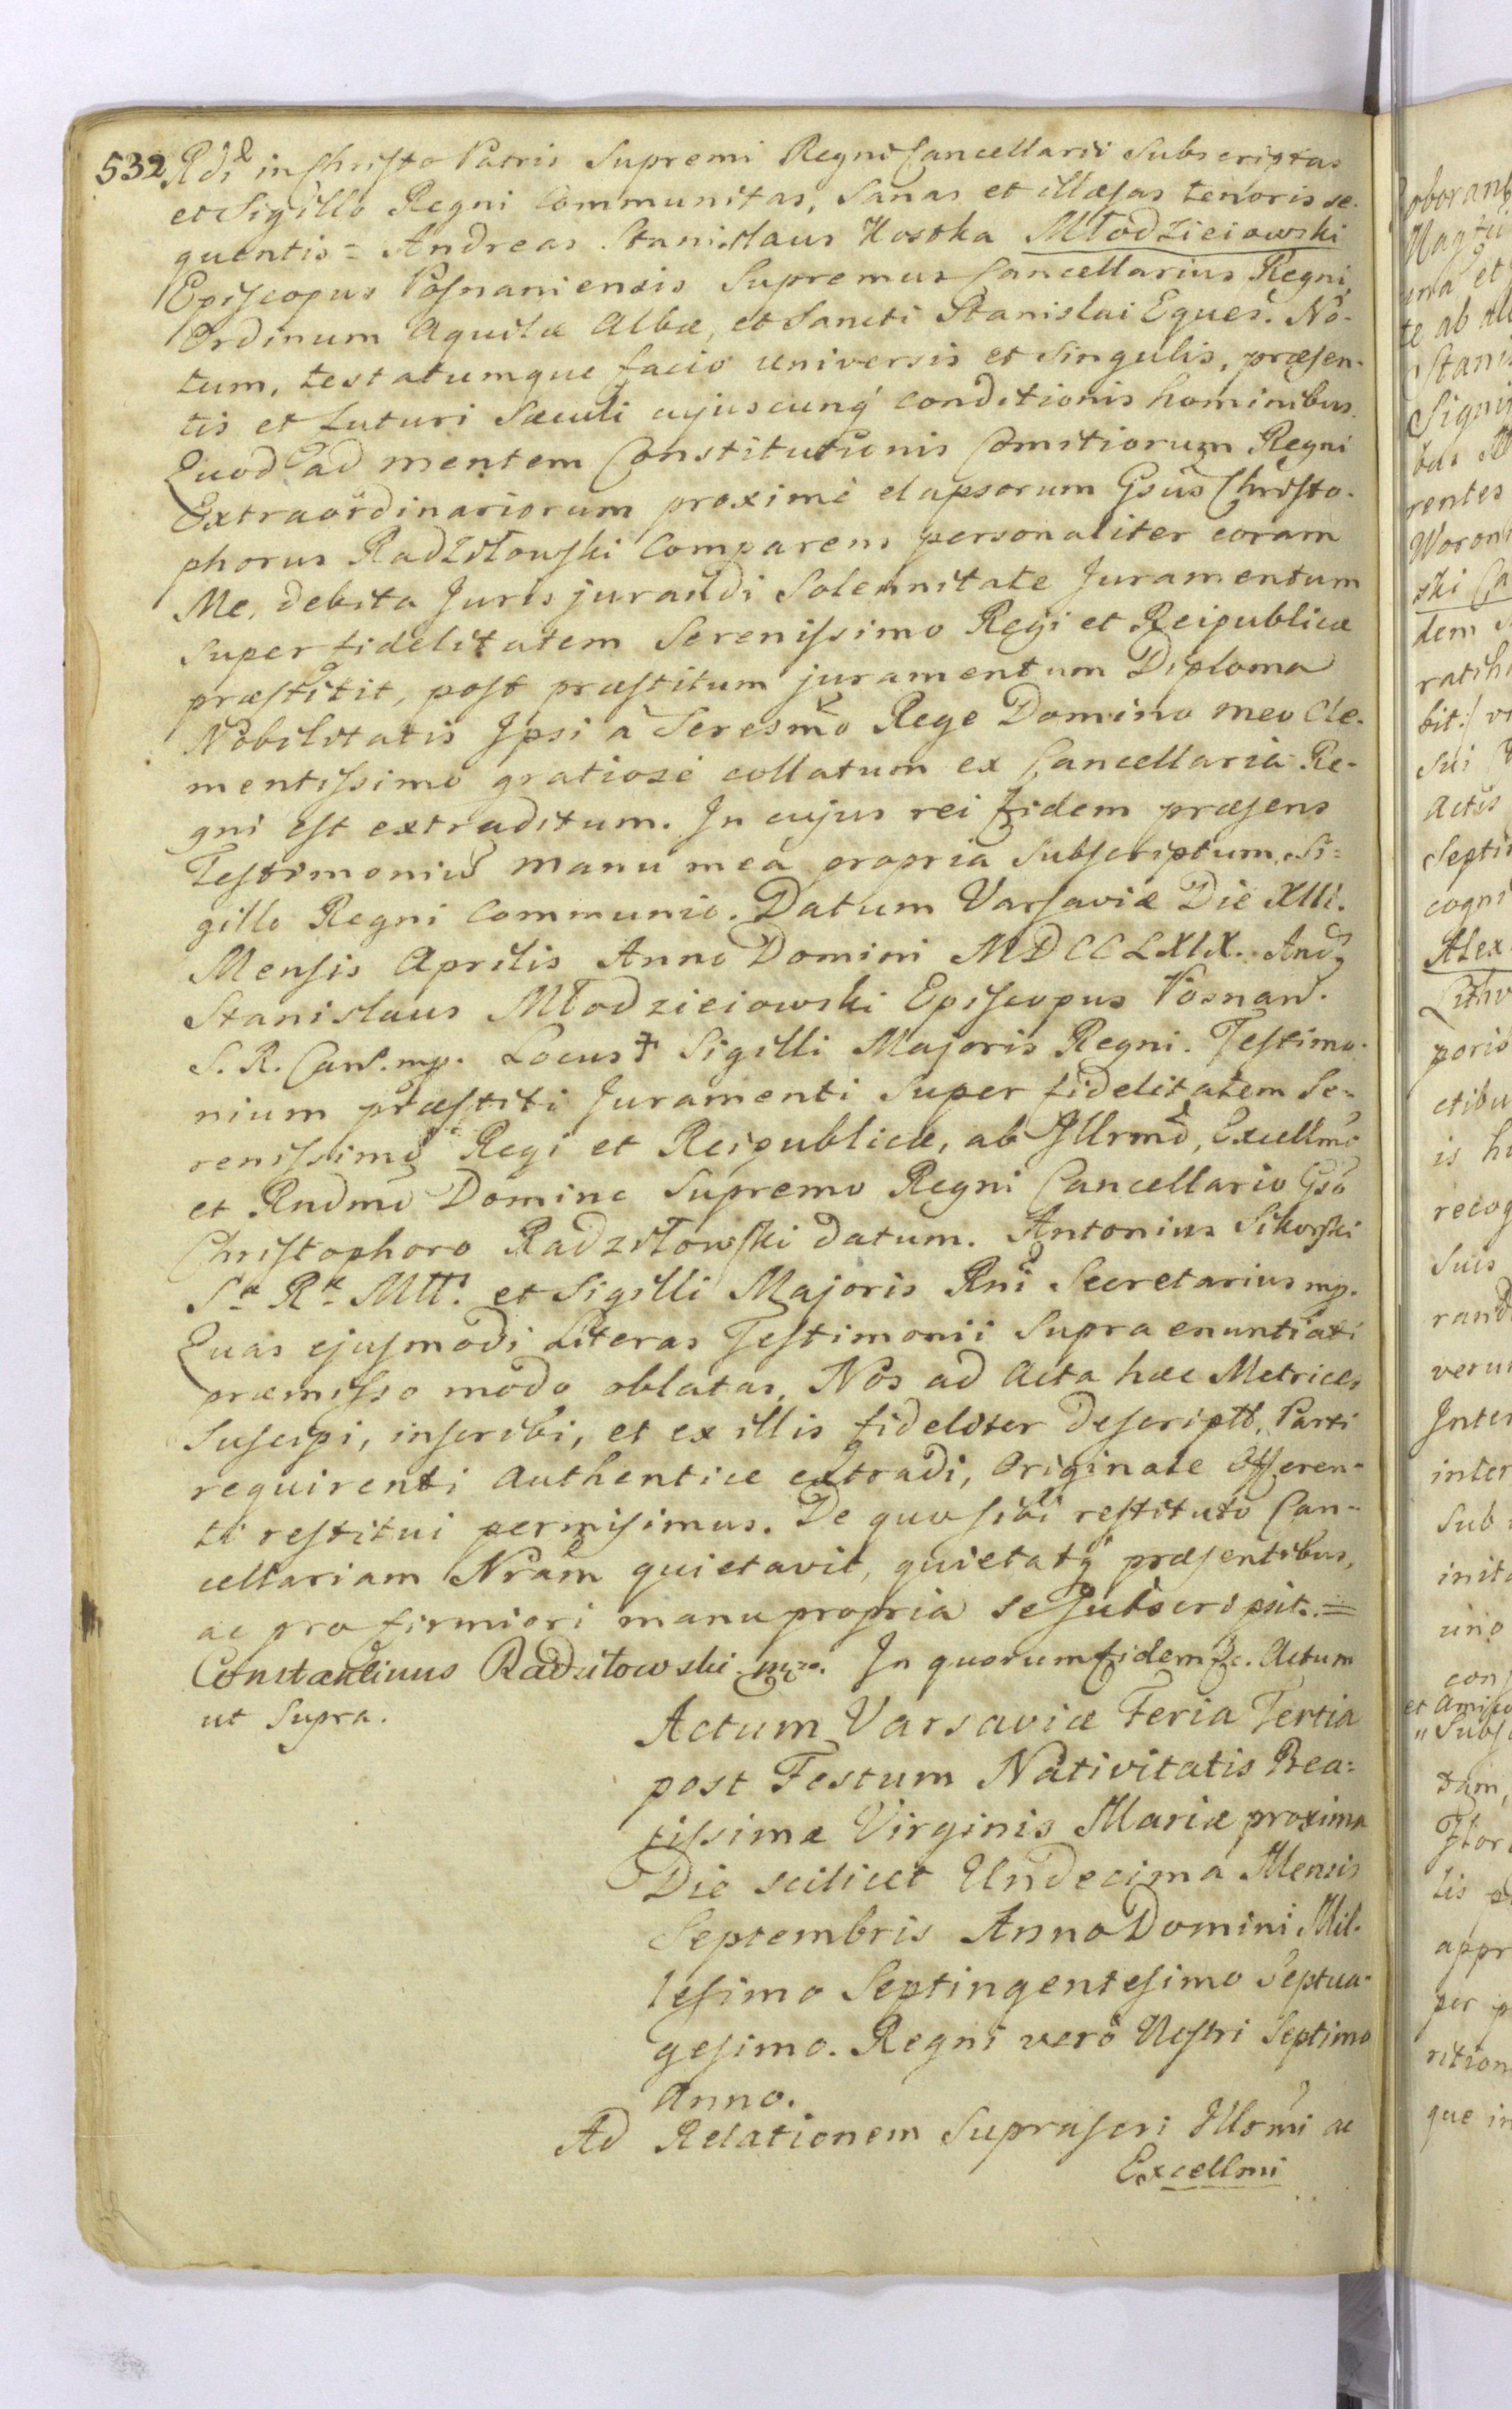 532 Rdi in Christo Patris Supremi Regni Cancellarii Subscriptas
et Sigillo Regni Communitas, Sanas et illæsas tenoris se-
quentis = Andreas Stanislaus Kostka Młodzieiowski
Episcopus Posnaniensis Supremus Cancellarius Regni,
Ordinum Aquilæ Albæ, et Sancti Stanislai Eques. No-
tum, testatumque facio universis et Singulis, præsen-
tis et futuri Sæculi cujuscunq conditionis hominibus.
Quod ad mentem Constitutionis Comitiorum Regni
Extraordinariorum proximè elapsorum Gsus Christo-
phorus Radziłowski Comparens personaliter coram
Me, debita Juris jurandi Solennitate Juramentum
Super fidelitatem Serenissimo Regi et Reipublicæ
præstitit, post præstitum juramentum Diploma
Nobilitatis Ipsi à Seresmo Rege Domino meo Cle-
mentissimo gratiosè collatum ex Cancellaria Re-
gni est extraditum. In cujus rei fidem præsens
Testimoniu manu meâ propria Subscriptum, Si-
gillo Regni Communio. Datum Varsaviæ Die XIII.
Mensis Aprilis Anno Domini MDCCLXIX. And
Stanislaus Młodzieiowski Episcopus Posnan.
S. R. Can. mp. Locus † Sigilli Majoris Regni. Testimo-
nium præstiti Juramenti Super fidelitatem Se-
renissimo Regi et Reipublicæ, ab Illrmo, Excellmo
et Rndmo Domino Supremo Regni Cancellario Gso
Christophoro Radziłowski datum. Antonius Sikorski
Sæ Ræ Mtt. et Sigilli Majoris Rni Secretarius mp.
Quas ejusmodi Literas Testimonii Supra enuntiati
præmisso modo oblatas, Nos ad Acta hæc Metrices
Suscipi, inscribi, et ex illis fideliter descriptt, Parti
requirenti Authentice extradi, Originale Offeren-
ti restitui permisimus. De quo sibi restituto Can-
cellariam Nram quietavit, quietatq præsentibus,
ac pro firmiori manu propria se Subscripsit. =
Constantinus Radziłowski mp. In quorum fidem &c. Actum
ut Supra.
Actum Varsaviæ Feria Tertia
post Festum Nativitatis Bea-
tissimæ Virginis Mariæ proxima
Die scilicet Undecima Mensis
Septembris Anno Domini Mil-
lesimo Septingentesimo Septua-
gesimo. Regni verò Nostri Septimo
Anno.
Ad Relationem Suprascri Illrmi ac
Excellmi